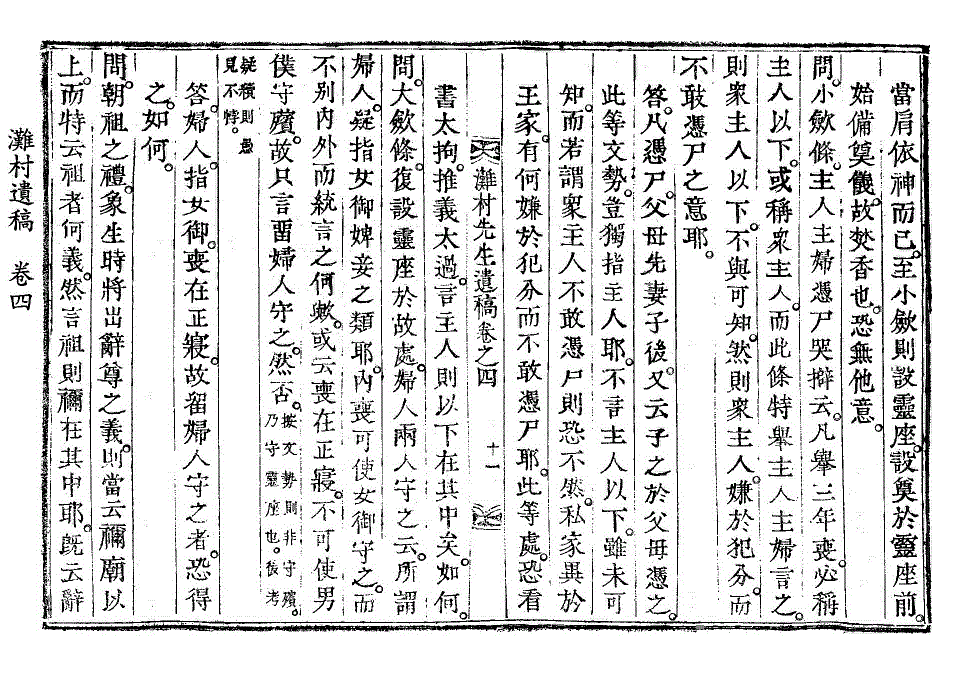 當肩依神而已。至小斂則設靈座。設奠於靈座前。
始備奠儀。故焚香也。恐無他意。
問。小斂條。主人主婦憑尸哭擗云。凡舉三年喪。必稱
主人以下。或稱衆主人。而此條特舉主人主婦言之。
則衆主人以下。不與可知。然則衆主人。嫌於犯分。而
不敢憑尸之意耶。
答。凡憑尸。父母先妻子後。又云子之於父母憑之。
此等文勢。豈獨指主人耶。不言主人以下。雖未可
知。而若謂衆主人不敢憑尸則恐不然。私家異於
王家。有何嫌於犯分而不敢憑尸耶。此等處。恐看
灘村先生遺稿卷之四 十一
書太拘。推義太過。言主人則以下在其中矣。如何。
問。大斂條。復設靈座於故處。婦人兩人守之云。所謂
婦人。疑指女御婢妾之類耶。內喪可使女御守之。而
不別內外而統言之何歟。或云喪在正寢。不可使男
僕守殯。故只言留婦人守之。然否。按文勢則非守殯。乃守靈座也。後考
疑積則愚見不特。
答。婦人。指女御。喪在正寢。故留婦人守之者。恐得
之。如何。
問。朝祖之禮。象生時將出辭尊之義。則當云禰廟以
上。而特云祖者何義。然言祖則禰在其中耶。旣云辭
灘村遺稿 卷四